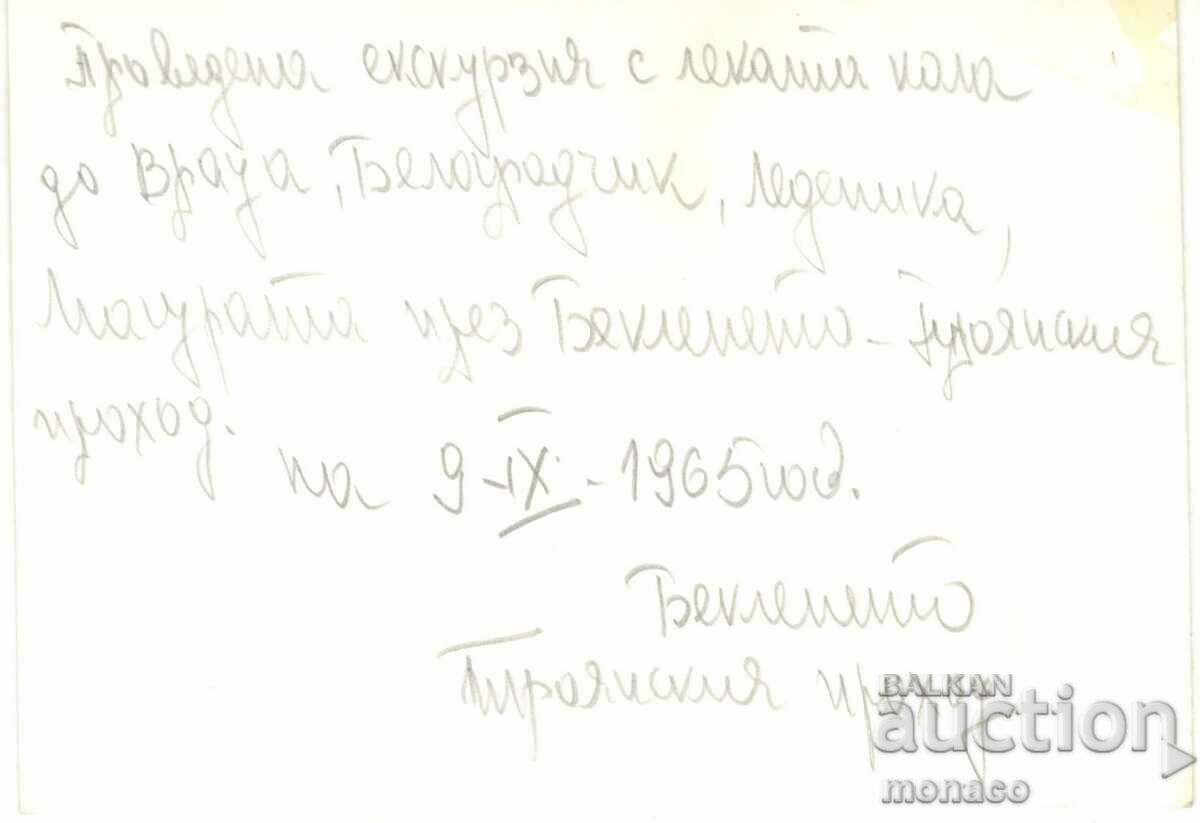 Проведена екскурзия с леката кола
до Враца, Белоградчик, Леденика,
Магурата през Беклемето - Троянския
проход.
на 9-IX-1965 год.
Беклемето
Троянския проход
BALKAN
auction
monaco